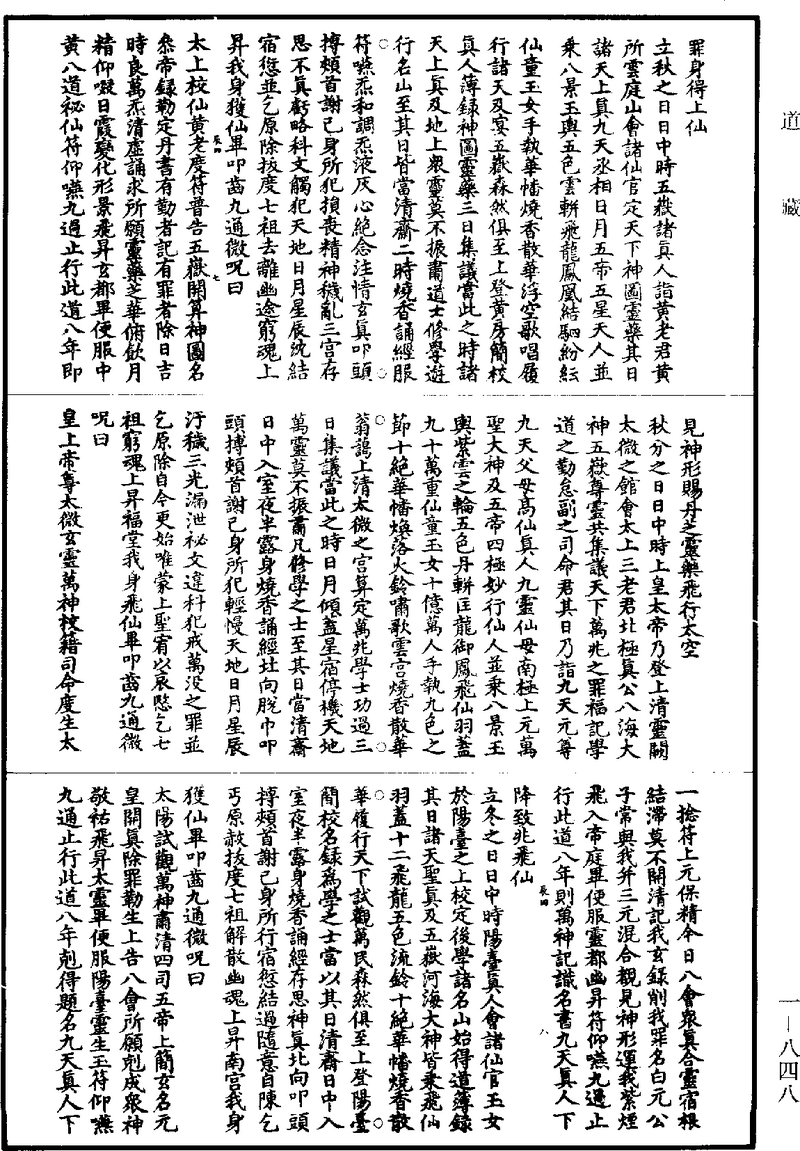 道藏
罪身得上仙
立秋之日日中時五嶽諸真人詣黄老君黄
所雲庭山會諸仙官定天下神圖靈藥其日
諸天上真九天丞相日月五帝五星天人並
乘八景玉輿五色雲軿飛龍鳳凰結駟紛紜
仙童玉女手執華幡燒香散華浮空歌唱履
行諸天及宴五嶽森然俱至上登黄房簡校
真人簿録神圖靈藥三日集議當此之時諸
天上真及地上衆靈莫不振肅道士修學遊
行名山至其日皆當清齋二時燒香誦經服
符嚥炁和調炁液灰心絶念注情玄真叩頭
搏頰首謝己身所犯損喪精神穢亂三宫存
思不真虧略科文觸犯天地日月星辰沈結
宿愆並乞原除拔度七祖去離幽途窮魂上
昇我身獲仙畢叩齒九通微呪曰
辰四
七
太上校仙黄老度符普告五嶽開算神圖名
叅帝録勒定丹書有勤者記有罪者除日吉
時良萬炁清虚誦求所願靈藥芝華俯飲月
精仰啜日霞變化形景飛昇玄都畢便服中
黄八道祕仙符仰嚥九過止行此道八年即
見神形賜丹芝靈藥飛行太空
秋分之日日中時上皇太帝乃登上清靈闕
太微之館會太上三老君北極真公八海大
神五嶽尊靈共集議天下萬兆之罪福記學
道之勤怠副之司命君其日乃詣九天元尊
九天父母高仙真人九靈仙母南極上元萬
聖大神及五帝四極妙行仙人並乘八景玉
輿紫雲之輪五色丹軿匡龍御鳳飛仙羽蓋
九十萬重仙童玉女十億萬人手執九色之
節十絶華幡焕落火鈴嘯歌雲宫燒香散華
蓊藹上清太微之宫算定萬兆學士功過三
日集議當此之時日月傾蓋星宿停機天地
萬靈莫不振肅凡修學之士至其日當清齋
日中入室夜半露身燒香誦經北向脱巾叩
頭搏頰首謝己身所犯輕慢天地日月星辰
汙穢三光漏泄祕文違科犯戒萬没之罪並
乞原除自今更始唯蒙上聖宥以居愍乞七
祖窮魂上昇福堂我身飛仙畢叩齒九通微
呪曰
皇上帝尊太微玄靈萬神校籍司命度生太
一捻符上元保精今日八會衆真合靈宿根
結滯莫不開清記我玄録削我罪名白元公
子常與我并三元混合覩見神形運我紫煙
飛入帝庭畢便服靈都幽昇符仰嚥九過止
行此道八年則萬神記識名書九天真人下
降致兆飛仙
辰四
八
立冬之日日中時陽臺真人會諸仙官玉女
於陽臺之上校定後學諸名山始得道簿録
其日諸天聖真及五嶽河海大神皆乘飛仙
羽蓋十二飛龍五色流鈴十絶華幡燒香散
華履行天下試觀萬民森然俱至上登陽臺
簡校名録爲學之士當以其日清齋日中入
室夜半露身燒香誦經存思神真北向叩頭
搏頰首謝己身所行宿愆結過隨意自陳乞
丐原赦拔度七祖解散幽魂上昇南宫我身
獲仙畢叩齒九通微呪曰
太陽試觀萬神肅清四司五帝上簡玄名元
皇開真除罪勒生上告八會所願剋成衆神
敬祐飛昇太靈畢便服陽臺靈生玉符仰嚥
九通止行此道八年剋得題名九天真人下
一—八四八